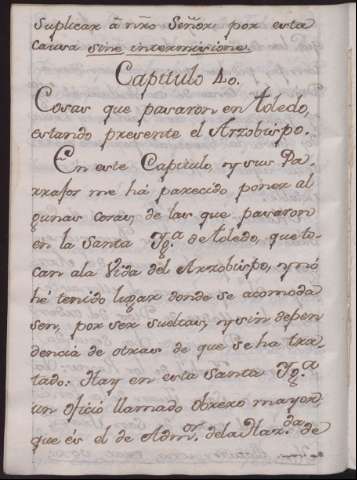 Suplicar â nr̃o Señor por esta
causa sine intermisione.
Capitulo 40.
Cosas que pasaron en toledo,
estando presente el Arzobispo.
En este Capitulo, y sus Pa-
rrafos me há parecido poner al
gunas cosas de las que pasaron
en la santa Yg.ª de toledo, que to-
can ala Vida del Arzobispo, y nó
hé tenido lugar donde se acomoda
sen, por ser sueltas, y sin depen
dencia de otras de que se ha tra-
tado: Hay en esta santa Yg.ª
un oficio llamado obrero mayor
que és el de Adm.or dela Haz.da de